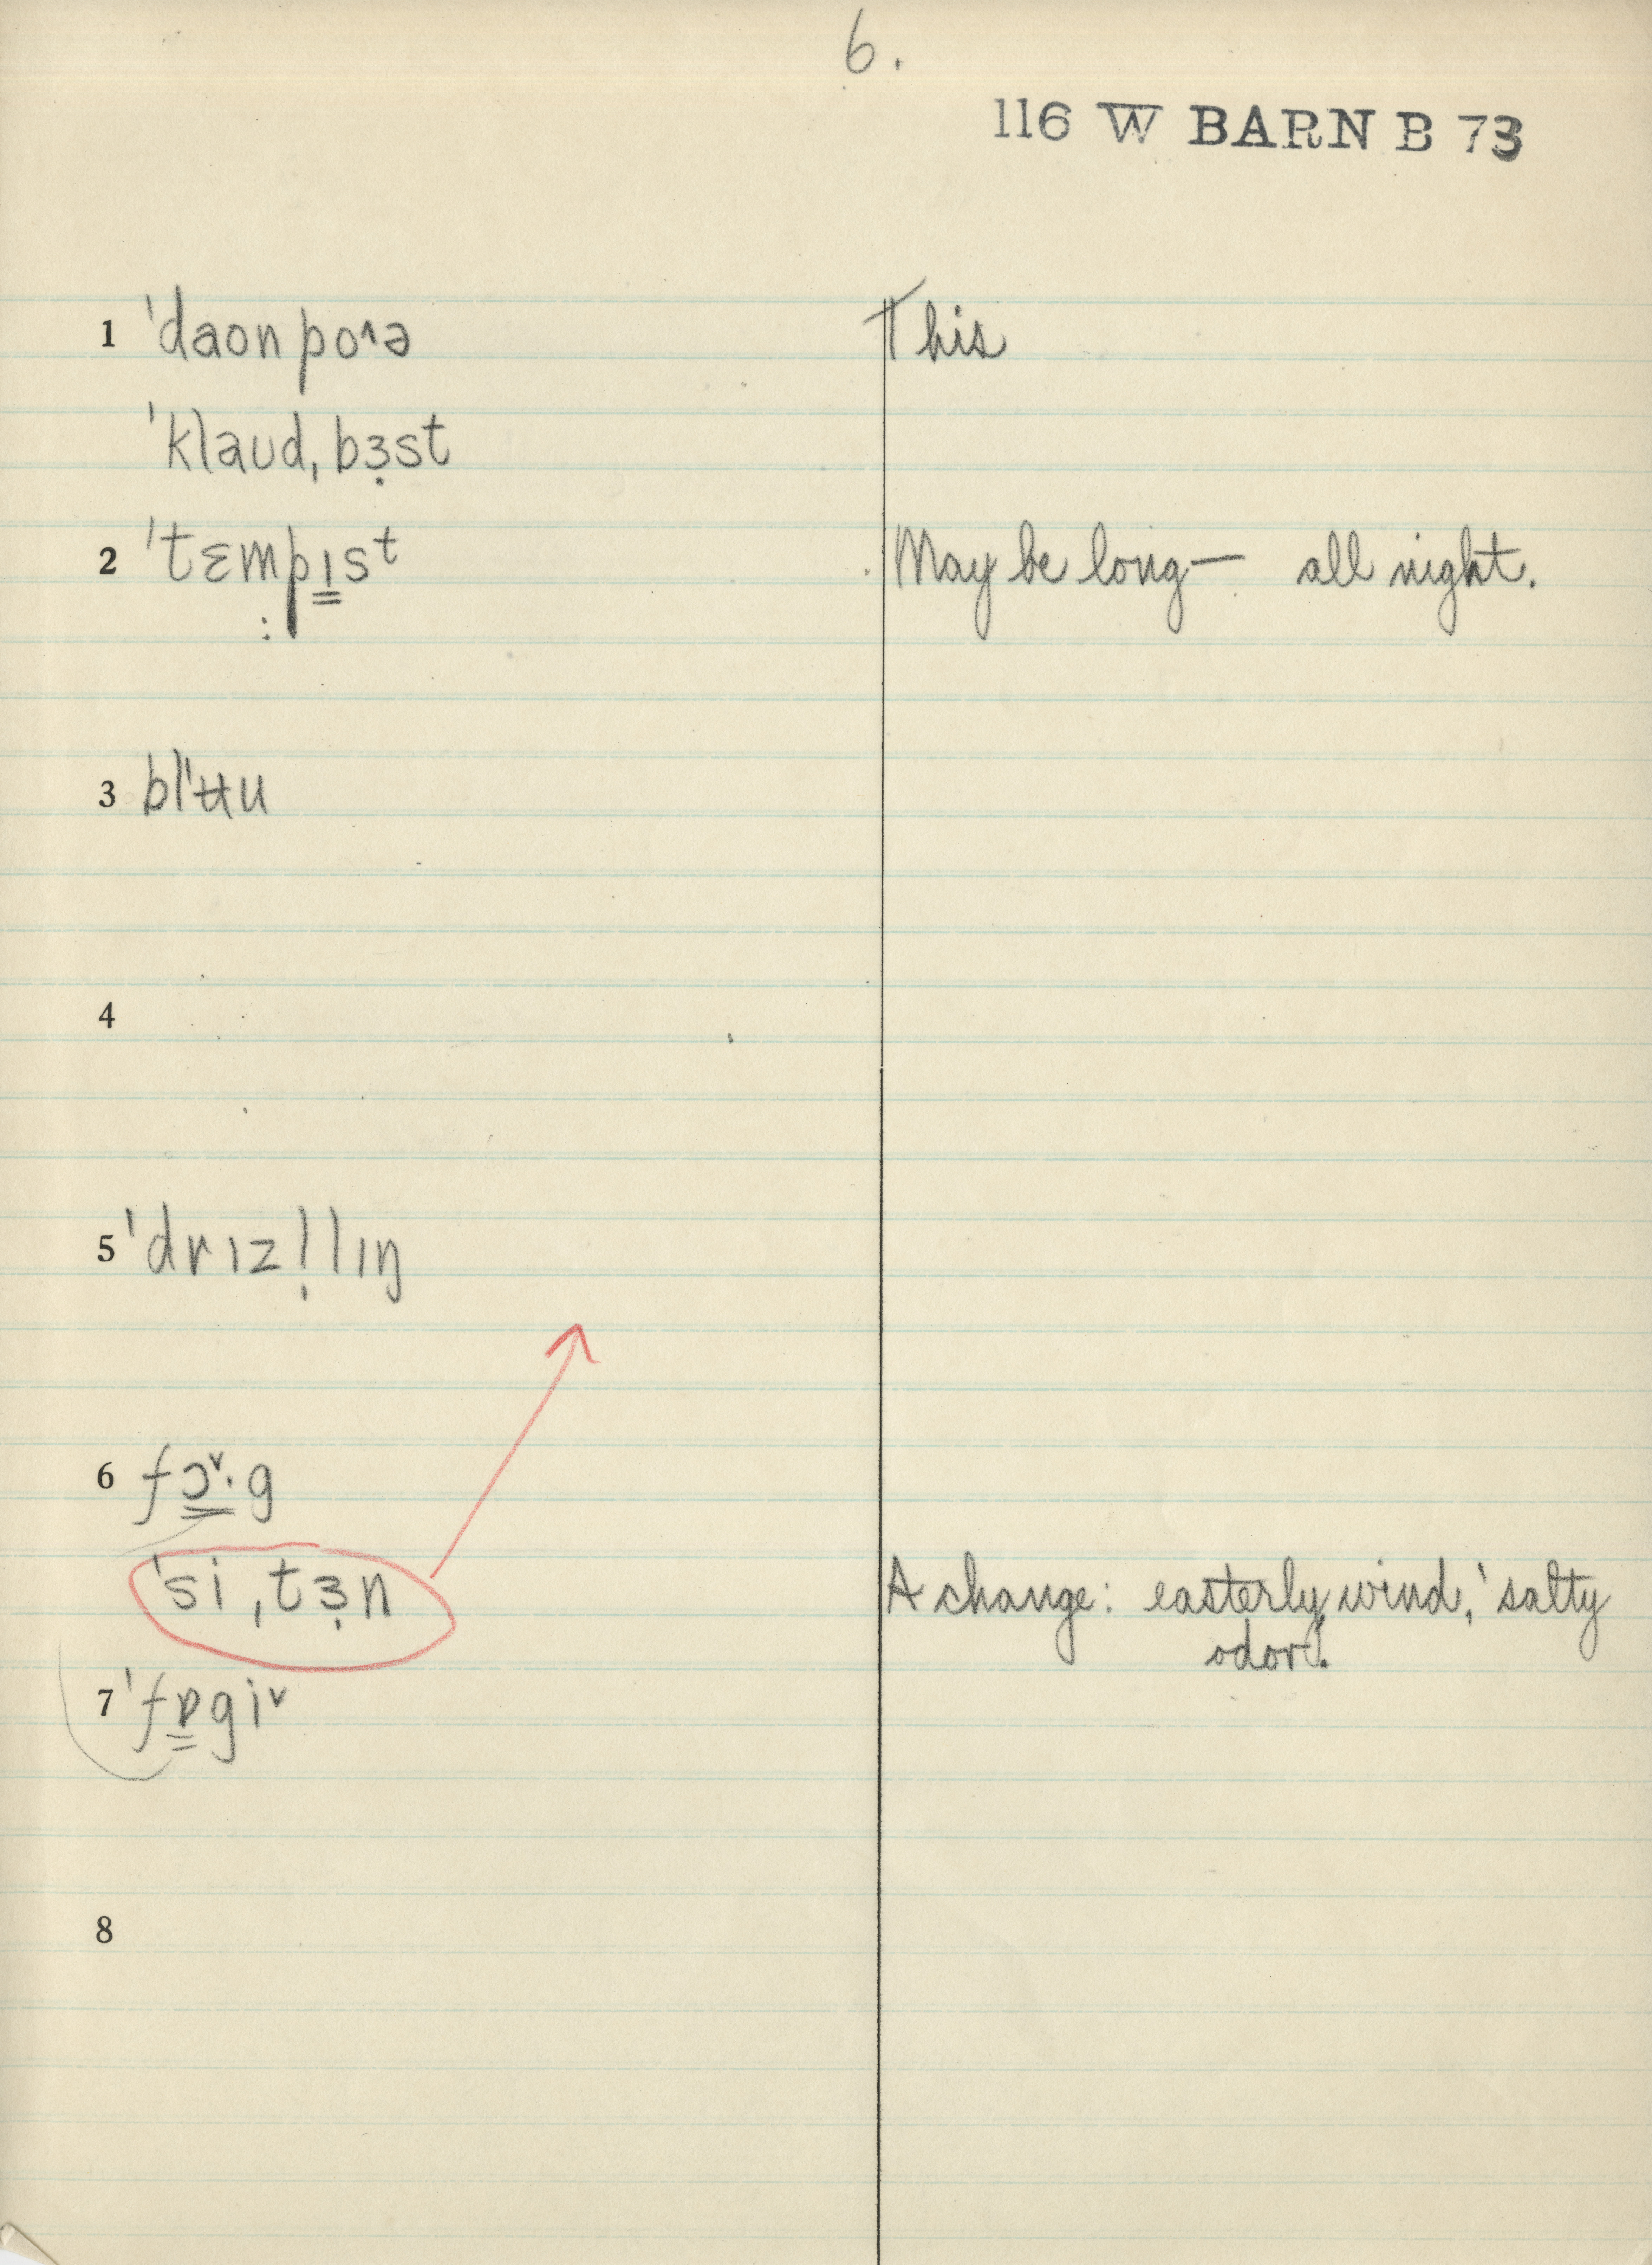 6.
116 W BARN B 73
1 ˈdaon po˄ə This
ˈklaʊd ˌbɜ̣st
2 ˈtɛmpı̳st May be long— all night.
3 blˈʉu
4
5 ˈdrɪzl̩lɪŋ
6 fɔ̳˅·g
ˈsi ˌtɜ̣n A change: easterly wind, 'salty
odor'.
7 ˈfɒ̳gi˅
8